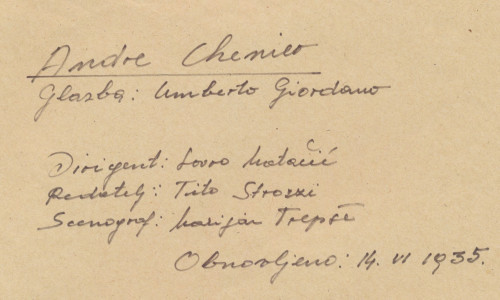 Andre Chenier
Glazba: Umberto Giordano
Dirigent: Lovro Matačić
Redatelj: Tito Strozzi
Scenograf: Marijan Trepše
Obnovljeno: 14. VI 1935.